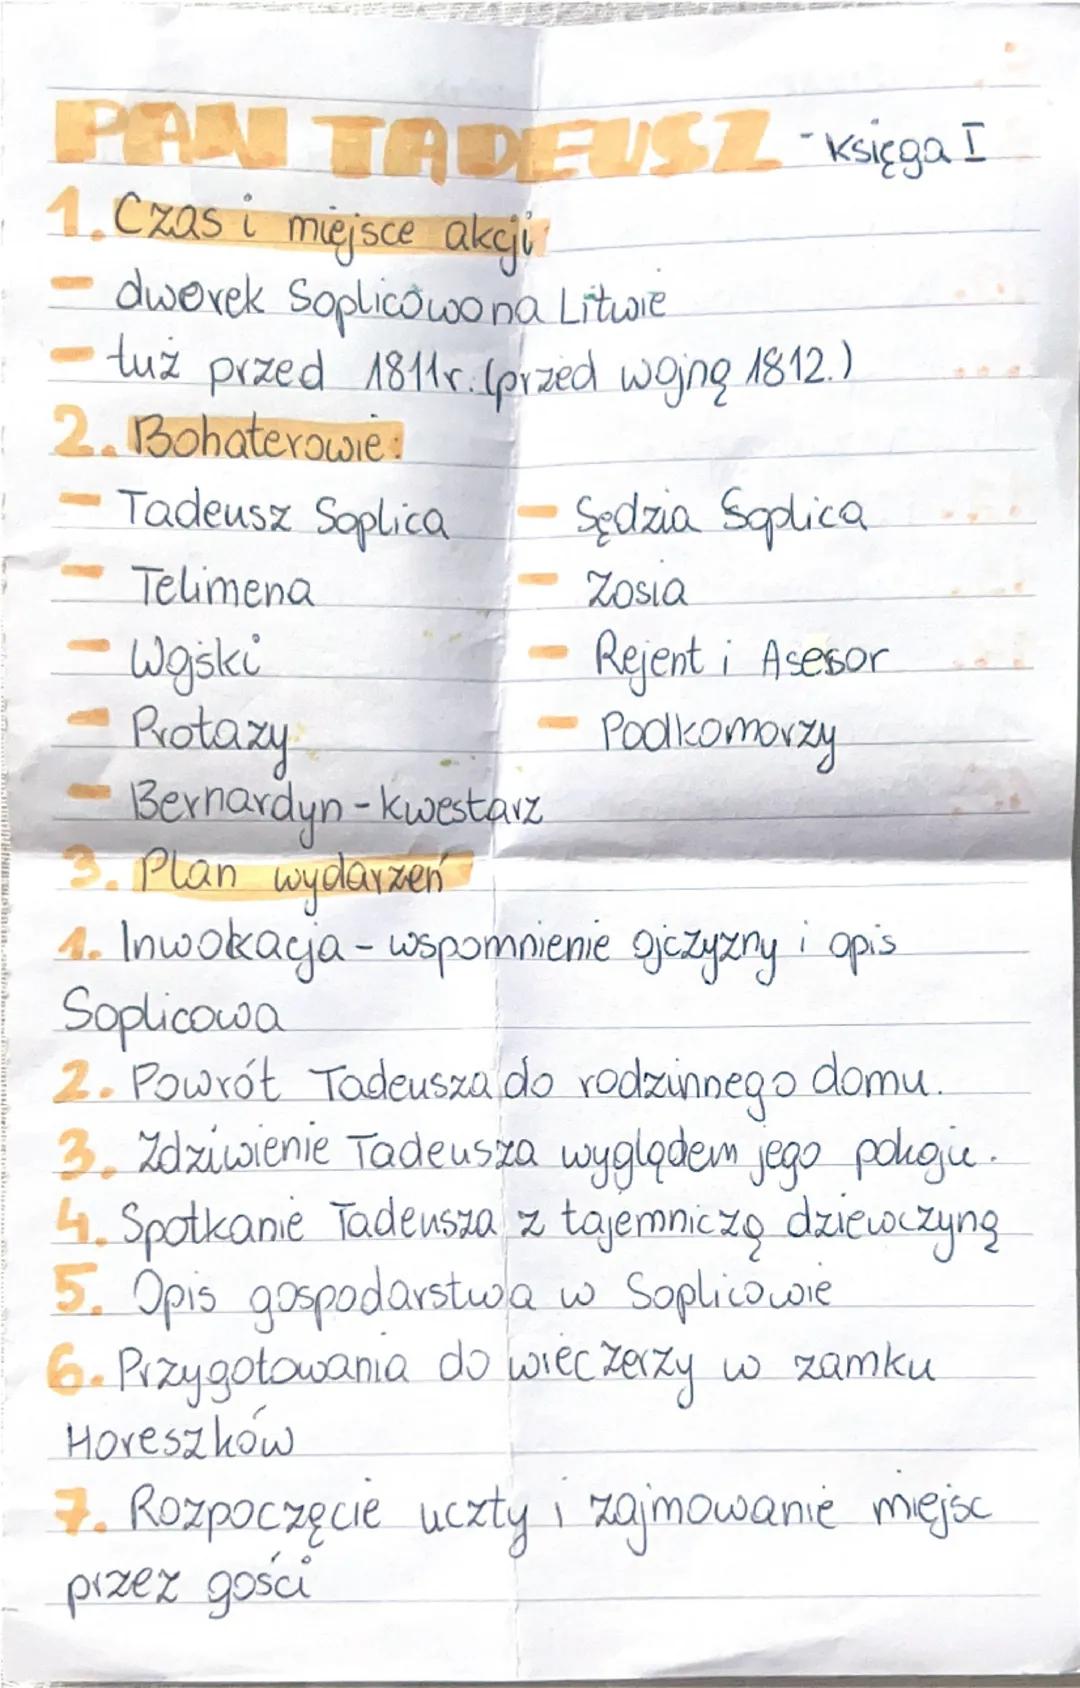 PAN TADEUSZ - księga I
1. Czas i miejsce akcji
- dworek Soplicowo na Litwie
- tuż przed 1811r. (przed wojną 1812.)
2. Bohaterowie:
- Tadeusz Soplica - Sędzia Soplica
- Telimena - Zosia
- Wojski - Rejent i Asesor
- Protazy - Podkomorzy
- Bernardyn - kwestarz
3. Plan wydarzeń
1. Inwokacja - wspomnienie ojczyzny i opis
Soplicowa
2. Powrót Tadeusza do rodzinnego domu.
3. Zdziwienie Tadeusza wyglądem jego pokoju.
4. Spotkanie Tadeusza z tajemniczą dziewczyną
5. Opis gospodarstwa w Soplicowie
6. Przygotowania do wieczerzy w zamku
Horeszków
7. Rozpoczęcie uczty i zajmowanie miejsc
przez gości